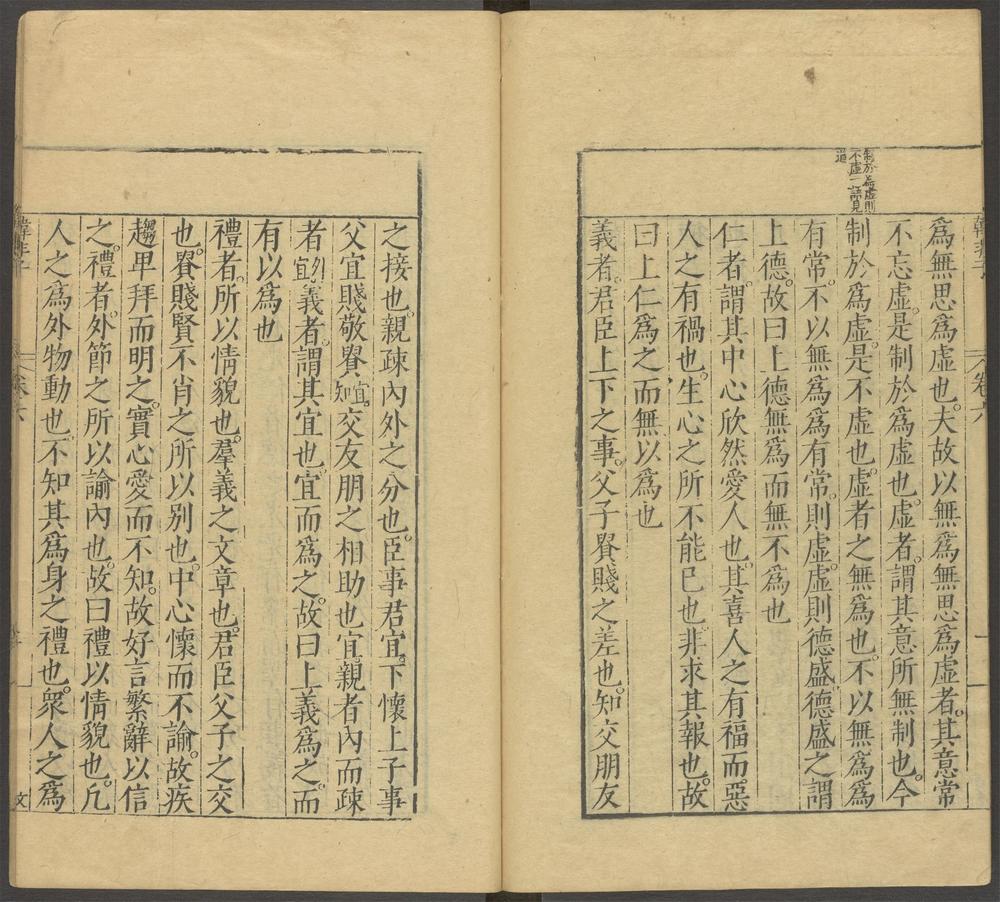 制於爲虛則
不虛二語見
道
爲無思爲虛也。夫故以無爲無思爲虛者。其意常
不忘虛。是制於爲虛也。虛者。謂其意所無制也。今
制於爲虛。是不虛也。虛者之無爲也。不以無爲爲
有常。不以無爲爲有常。則虛。虛則德盛。德盛之謂
上德。故曰上德無爲而無不爲也
仁者。謂其中心欣然愛人也。其喜人之有福而惡
人之有禍也。生心之所不能已也。非求其報也。故
曰上仁爲之而無以爲也
義者。君臣上下之事。父子貴賤之差也。知交朋友
之接也。親疎內外之分也。臣事君宜。下懷上子事
父宜賤敬貴宜。知交友朋之相助也宜。親者內而疎
者外宜義者。謂其宜也。宜而爲之。故曰上義爲之。而
有以爲也
禮者。所以情貌也。羣義之文章也。君臣父子之交
也。貴賤賢不肖之所以别也。中心懷而不諭。故疾
趨卑拜而明之。實心愛而不知。故好言繁辭以信
之。禮者。外節之所以諭內也。故曰禮以情貌也。凡
人之爲外物動也。不知其爲身之禮也。衆人之爲
韓非子
卷六
十一
文